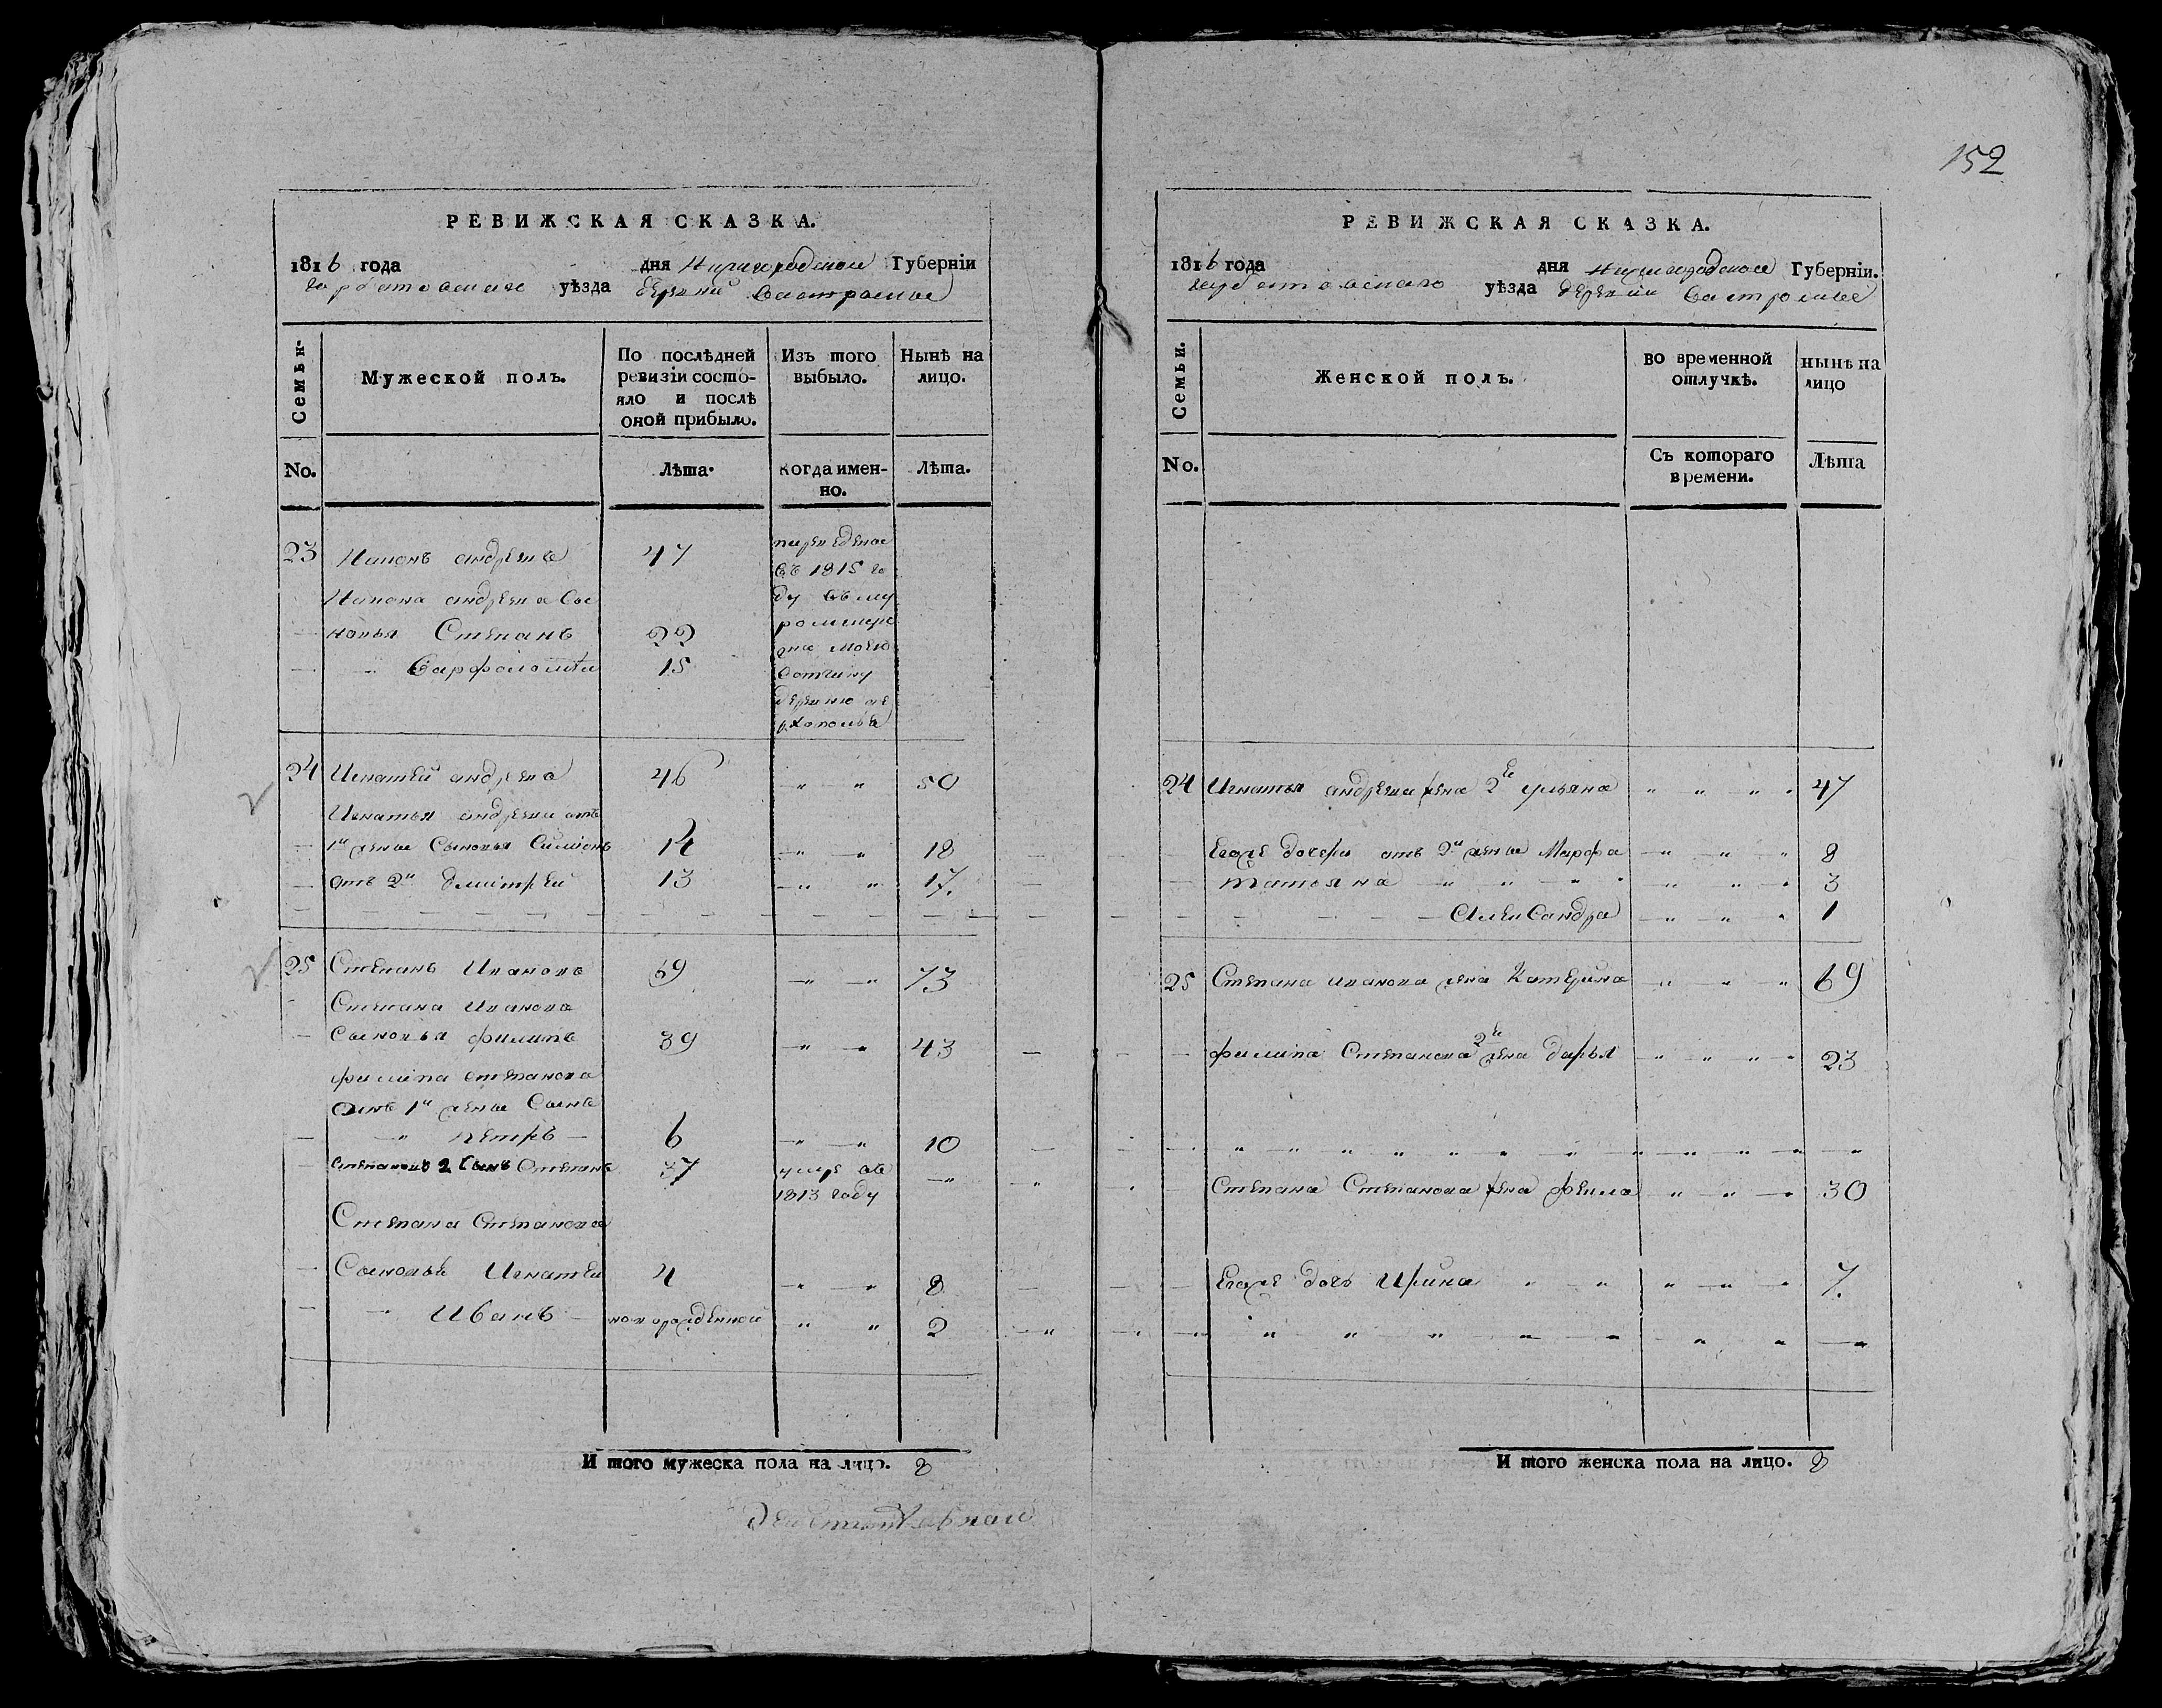 152
РЕВИЖСКАЯ СКАЗКА.
1816 года дня Нижегородской Губерніи
горбатовскаго уѣзда деревни Вастромы
Семьи.
Мужеской полъ.
По послѣдней ревизіи состояло и послѣ оной прибыло.
Изъ того выбыло.
Нынѣ на лицо.
No.
Лѣта.
Когда именно.
Лѣта.
23 Нипонъ андреевъ 47 переведены
въ 1815 го
Нипона андреева сы ду въ му
новья Степанъ 22 ромскую
Варфоломей 15 вотчину
деревню
24 Игнатей андреевъ 46 " " 50
Игнатья андреева отъ
1й жены Сыновья Симіонъ 14 " " 18
отъ 2й дмитрей 13 " " 17.
25 Степанъ Ивановъ 69 " " 73
Степана Иванова
Сыновья филипъ 39 " " 43
филипа степанова
отъ 1й жены Сынъ
" петръ 6 " " 10
степановъ 2 Сынъ Степанъ 37 умре въ "
1813 году
Степана Степанова
Сыновья Игнатей 4 " " 8
" Иванъ новорожденной " " 2
И того мужеска пола на лицо. 8
РЕВИЖСКАЯ СКАЗКА.
1816 года дня нижегородской Губерніи.
горбатовскаго уѣзда деревни Вастромы
Семьи.
Женской полъ.
во временной отлучкѣ.
нынѣ на лицо
No.
Съ котораго времени.
Лѣта
24 Игнатья андреева жена 2я ульяна " " " " 47
Егоже дочери отъ 2й жены Марфа " " " 8
татьяна " " " " " " 3
АлекСандра " " " 1
25 Степана иванова жена Катерина " " " 69
филипа Степанова 2я жена дарья " " " " 23
Степана Степанова жена фекла " " " 30
Егоже дочь Ирина " " " " " 7.
И того женска пола на лицо. 8